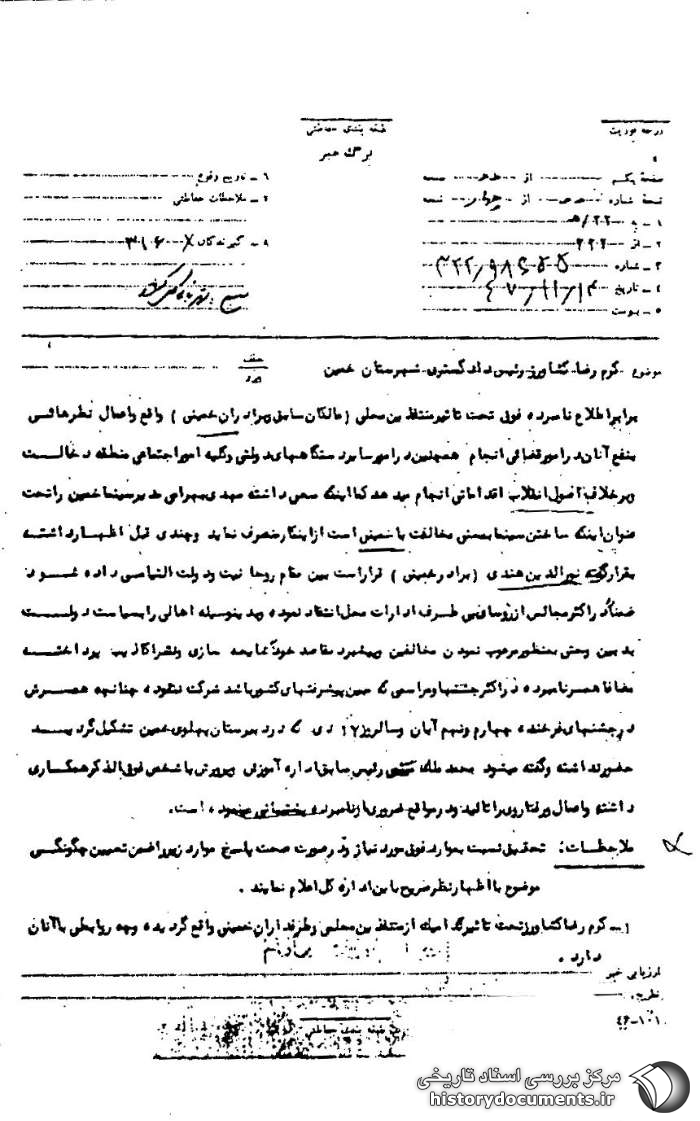 درجه فوریت
طبقه بندی حفاظتی
برگ خبر
صفحه یکم از صفحه
نسخه شماره از نسخه
۱ – به ۲۲/ﻫ
۲ – از ۲۲۲
۳ – شماره
۴ – تاریخ ۴۷/۱۱/۱۴
۵ – پیوست
۶ – تاریخ وقوع
۷ – ملاحظات حفاظتی
۸ – گیرندگان
موضوع کرم رضا کشاورز رئیس دادگستری شهرستان خمین
برابر اطلاع نامبرده فوق تحت تاثیر متنفذین محلی (مالکان سابق وبرادران خمینی) واقع واعمال نظرهائی
بنفع آنان در امور قضائی انجام همچنین در امور سایر دستگاههای دولتی وکلیه امور اجتماعی منطقه دخالت
وبرخلاف اصول انقلاب اقداماتی انجام میدهد کما اینکه سعی داشته مهدی بهرامی مدیر سینما خمین را تحت
عنوان اینکه ساختن سینما بمعنی مخالفت با خمینی است از اینکار منصرف نماید وچندی قبل اظهار داشته
بقرار گفته نورالدین هندی (برادر خمینی) قرار است بین مقام روحانیت ودولت التیامی داده شود
ضمناً در اکثر مجالس از روسا طرف ادارات محل انتقاد نموده وبدینوسیله اهالی را بسیاست دولت
بدبین وحتی بمنظور مرعوب نمودن مخالفین وپیشبرد مقاصد خود شایعه سازی ونشر اکاذیب پرداخته
مضافا همسر نامبرده در اکثر جشنها ومراسمی که مبین پیشرفتهای کشور باشد شرکت ننموده چنانچه همسرش
در جشنهای فرخنده چهارم ونهم آبان وسالروز ۱۷ دی که در دبیرستان پهلوی خمین تشکیل گردیده
حضور نداشته وگفته میشود محمد ملک رئیس سابق اداره آموزش وپرورش با شخص فوق الذکر همکاری
داشته واعمال ورفتار وی را تائید ودر مواقع ضروری از نامبرده پشتیبانی مینموده است.
ملاحظات: تحقیق نسبت بموارد فوق مورد نیاز ودر صورت صحت پاسخ موارد زیر را ضمن تعیین چگونگی
موضوع با اظهار نظر صریح باین اداره کل اعلام نمایند.
۱- کرم رضا کشاورز تحت تاثیر کدامیک از متنفذین محلی وطرفداران خمینی واقع گردیده وچه روابطی با آنان
دارد.
ارزیابی خبر
نظریه
۴۶-۱۰۱
طبقه بندی حفاظتی
مرکز بررسی اسناد تاریخی
historydocuments.ir